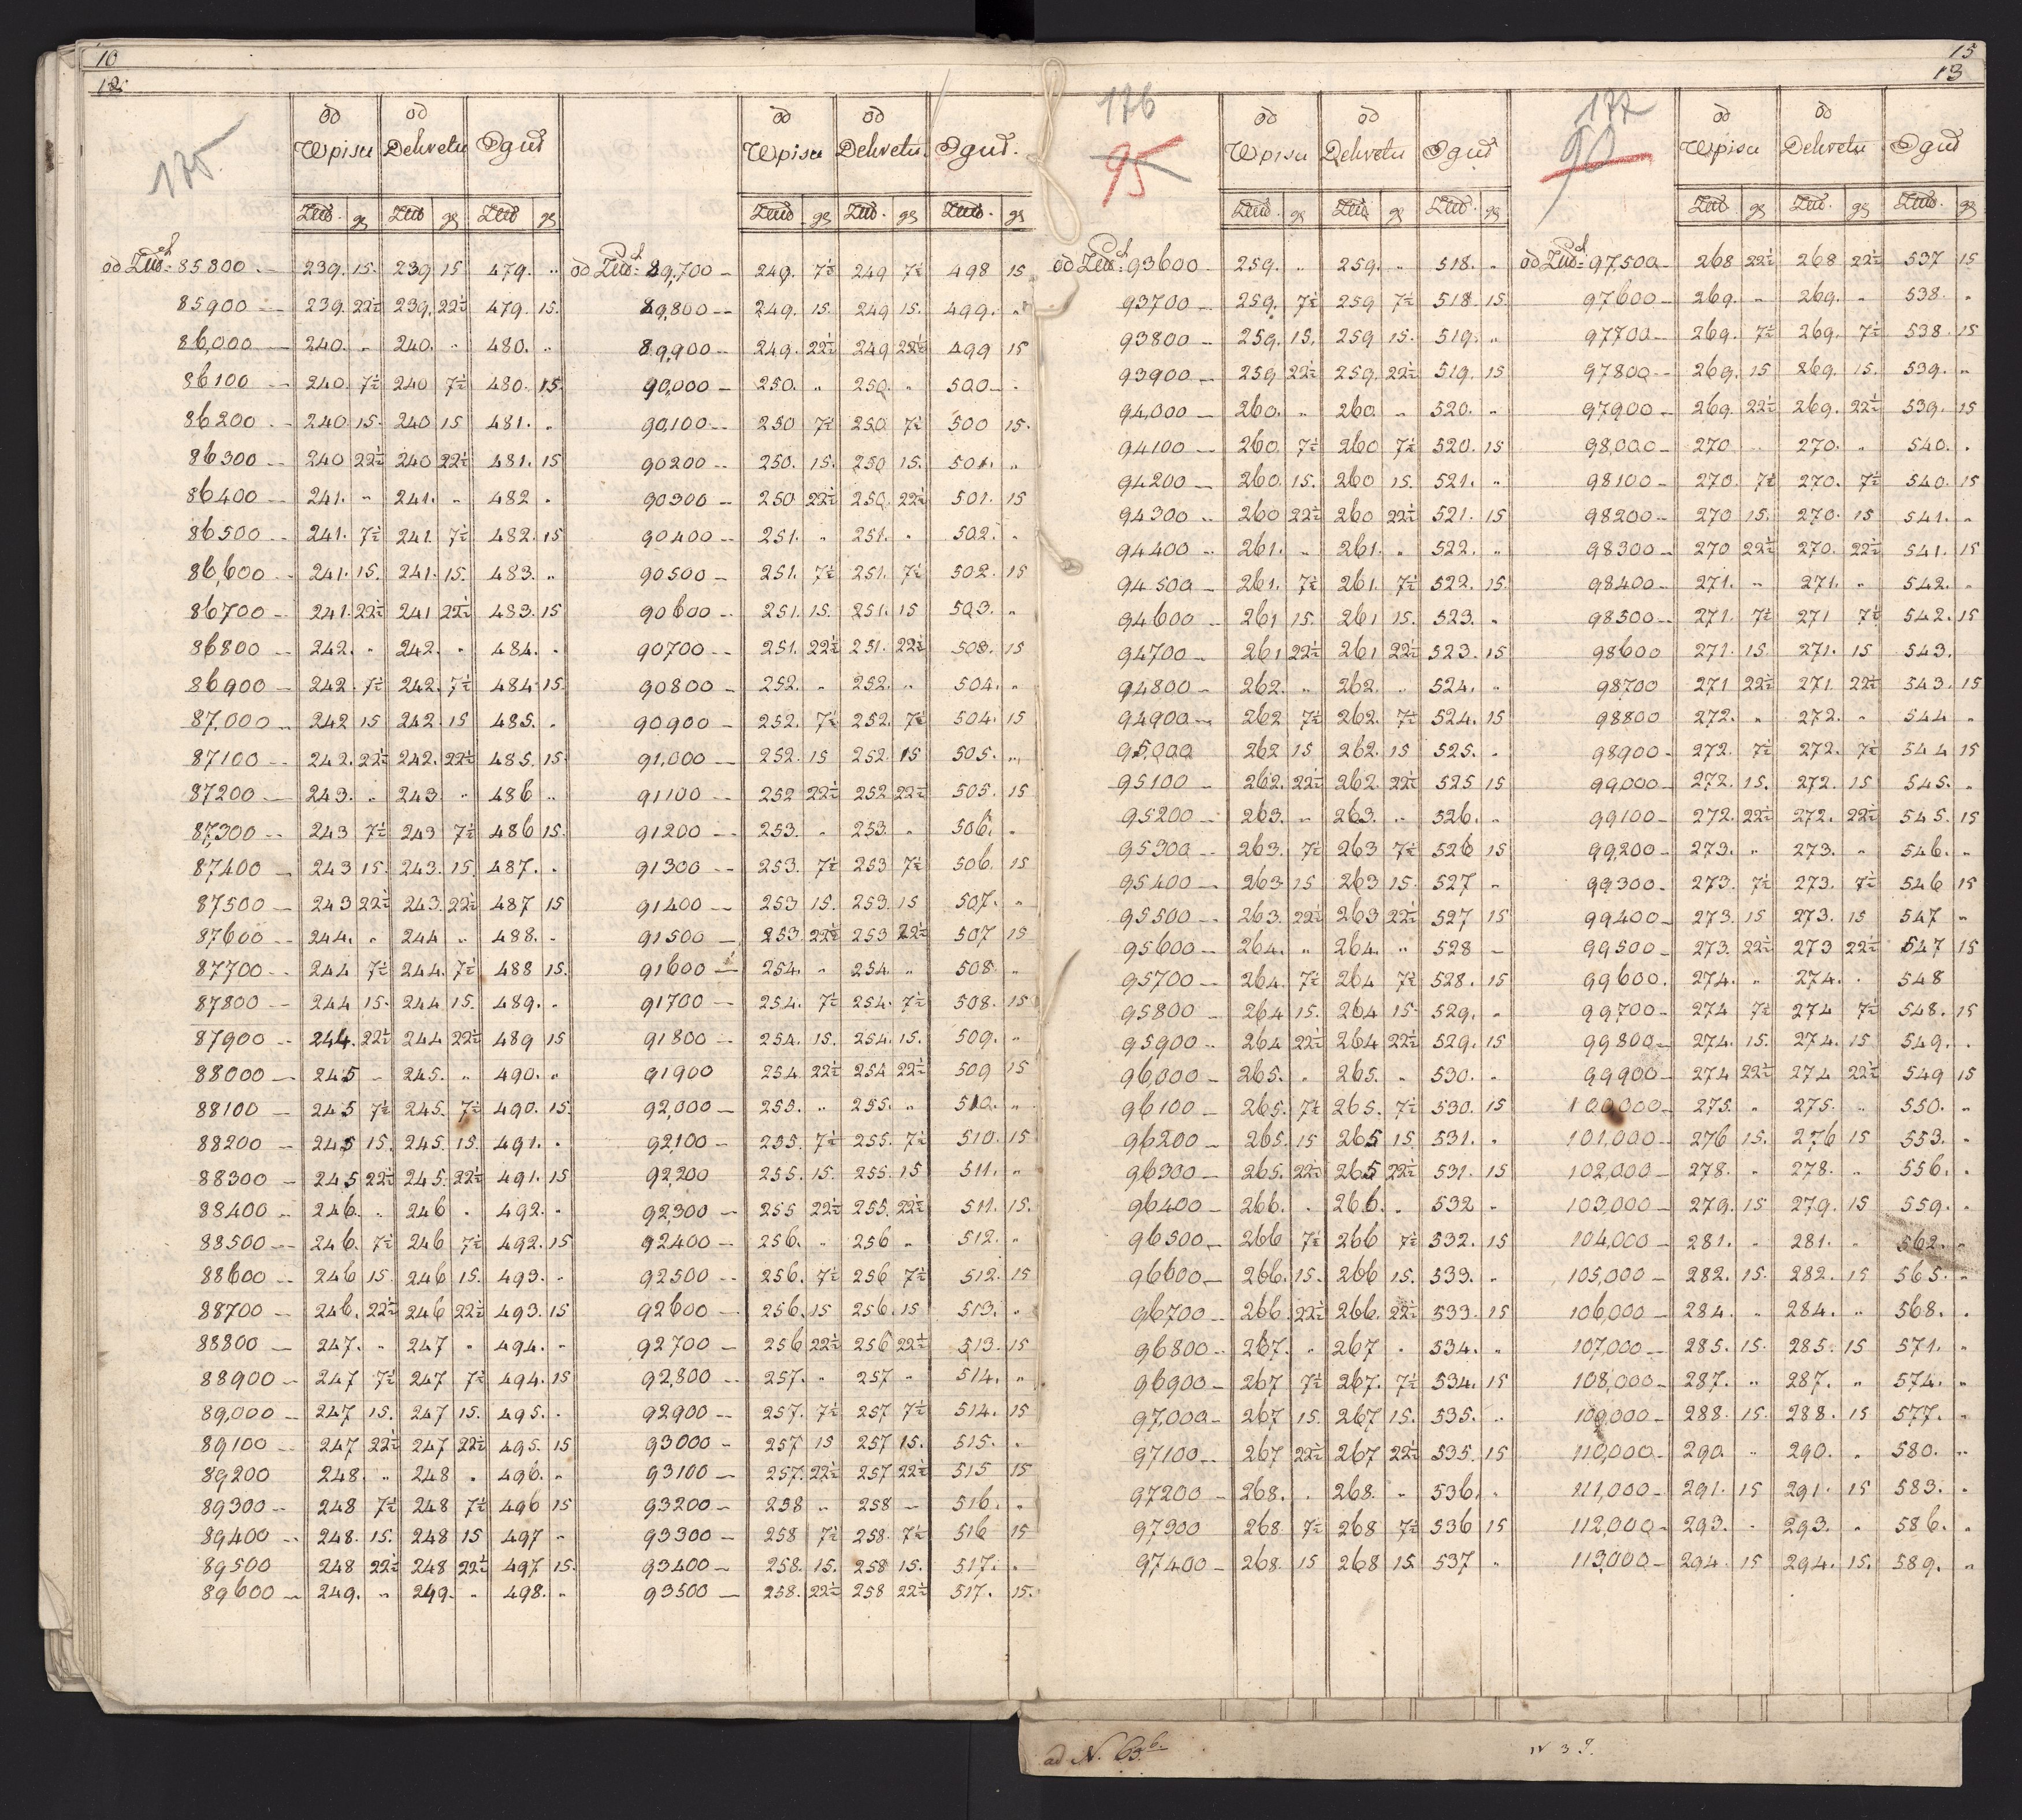 10
12
175
od Wpisu od Dekretu Oguł
Złt. gr Złt gr Złt gr
od Złt: 85800 239. 15. 239 15 479. "
85900 239. 22½ 239. 22½ 479. 15.
86,000 240. " 240. " 480. "
86100 240. 7½ 240 7½ 480. 15.
86200 240 15. 240 15 481. "
86300 240 22½ 240 22½ 481. 15
86400 241. " 241. " 482 "
86500 241. 7½ 241. 7½ 482. 15
86,600 241. 15. 241. 15. 483. "
86700 241. 22½ 241 22½ 483. 15
86800 242. " 242. " 484. "
86900 242. 7½ 242. 7½ 484. 15.
87,000 242 15 242 15 485. "
87100 242. 22½ 242. 22½ 485. 15
87200 243. " 243. " 486 "
87,300 243 7½ 243 7½ 486 15.
87400 243 15. 243. 15. 487. "
87500 243 22½ 243. 22½ 487 15
87600 244. " 244 " 488. "
87700 244 7½ 244. 7½ 488 15.
87800 244 15. 244 15. 489. "
87900 244. 22½ 244 22½ 489 15
88000 245 " 245. " 490. "
88100 245 7½ 245. 7½ 490. 15.
88200 245 15. 245. 15. 491. "
88300 245 22½ 245. 22½ 491. 15
88400 246. " 246 " 492. "
88500 246. 7½ 246 7½ 492. 15
88600 246 15. 246 15. 493. "
88700 246. 22½ 246 22½ 493. 15
88800 247. " 247 " 494. "
88900 247 7½ 247 7½ 494. 15
89,000 247 15. 247 15. 495. "
89100 247 22½ 247 22½ 495. 15
89200 248. " 248 " 496. "
89300 248 7½ 248 7½ 496 15
89400 248. 15. 248 15 497 "
89500 248 22½ 248 22½ 497 15.
89600 249. " 249. " 498. "
od Wpisu od Dekretu Oguł.
Złt. gr Złt. gr Złt. gr
od Złt: 89,700 249. 7½ 249 7½ 498 15
89,800 249. 15. 249 15. 499. "
89,900 249. 22½ 249 22½ 499 15
90,000 250. " 250. " 500 "
90,100 250 7½ 250 7½ 500 15.
90200 250. 15. 250 15. 501. "
90300 250 22½ 250. 22½ 501. 15
90400 251. " 251. " 502. "
90500 251. 7½ 251. 7½ 502. 15
90600 251. 15. 251. 15 503. "
90700 251. 22½ 251. 22½ 503. 15
90800 252. " 252. " 504. "
90900 252. 7½ 252. 7½ 504. 15
91,000 252. 15 252. 15 505. "
91100 252 22½ 252 22½ 505. 15
91200 253. " 253. " 506. "
91300 253. 7½ 253 7½ 506. 15
91400 253 15. 253. 15 507. "
91500 253 22½ 253 22½ 507 15
91600 254. " 254. " 508. "
91700 254. 7½ 254. 7½ 508. 15
91800 254. 15. 254. 15. 509. "
91900 254 22½ 254 22½ 509 15
92,000 255. " 255. " 510. "
92,100 255. 7½ 255. 7½ 510. 15
92,200 255. 15. 255. 15 511. "
92,300 255 22½ 255. 22½ 511. 15.
92400 256. " 256 " 512. "
92500 256. 7½ 256 7½ 512. 15
92600 256. 15 256. 15 513. "
92700 256 22½ 256 22½ 513. 15
92,800 257. " 257 " 514. "
92900 257. 7½ 257 7½ 514. 15
93000 257 15 257 15. 515. "
93100 257. 22½ 257 22½ 515 15
93200 258 " 258 " 516. "
93300 258 7½ 258. 7½ 516 15
93400 258. 15. 258 15. 517. "
93500 258. 22½ 258 22½ 517. 15.
15
13
176
95
od Wpisu od Dekretu Oguł
Złt. gr Złt. gr Złt. gr
od Złt: 93600 259. " 259. " 518. "
93700 259. 7½ 259 7½ 518. 15.
93800 259. 15. 259 15. 519. "
93900 259 22½ 259. 22½ 519. 15
94,000 260. " 260. " 520. "
94100 260. 7½ 260 7½ 520. 15
94200 260. 15. 260 15. 521. "
94300 260 22½ 260 22½ 521. 15
94400 261. " 261. " 522. "
94500 261. 7½ 261. 7½ 522. 15.
94600 261 15. 261 15. 523. "
94700 261 22½ 261 22½ 523. 15
94800 262. " 262. " 524. "
94900 262 7½ 262. 7½ 524. 15
95,000 262 15 262. 15 525. "
95100 262. 22½ 262. 22½ 525 15
95200 263. " 263. " 526. "
95300 263. 7½ 263 7½ 526 15
95400 263 15 263 15. 527 "
95500 263. 22½ 263 22½ 527 15
95600 264. " 264. " 528 "
95700 264. 7½ 264 7½ 528. 15
95800 264 15. 264 15. 529. "
95900 264 22½ 264 22½ 529. 15
96,000 265. " 265. " 530. "
96100 265. 7½ 265. 7½ 530. 15
96200 265. 15 265 15 531. "
96300 265. 22½ 265 22½ 531. 15
96400 266. " 266. " 532 "
96500 266 7½ 266 7½ 532. 15
96600 266. 15. 266 15. 533. "
96700 266 22½ 266. 22½ 533. 15
96800 267. " 267 " 534. "
96900 267 7½ 267. 7½ 534. 15
97,000 267 15. 267 15. 535. "
97100 267 22½ 267 22½ 535. 15
97200 268. " 268. " 536. "
97300 268 7½ 268 7½ 536 15
97400 268. 15 268 15. 537 "
177
90
od Wpisu od Dekretu Oguł
Złt gr Złt. gr Złt. gr
od Złt: 97,500 268 22½ 268 22½ 537 15
97600 269. " 269. " 538. "
97700 269. 7½ 269. 7½ 538 15
97800 269. 15 269. 15. 539. "
97900 269. 22½ 269. 22½ 539. 15
98,000 270 " 270. " 540. "
98100 270. 7½ 270. 7½ 540. 15
98200 270 15. 270. 15 541. "
98300 270 22½ 270. 22½ 541. 15
98400 271. " 271. " 542. "
98500 271. 7½ 271 7½ 542. 15
98600 271. 15. 271. 15 543.
98700 271 22½ 271. 22½ 543. 15
98800 272. " 272. " 544 "
98900 272. 7½ 272. 7½ 544 15
99,000 272. 15. 272. 15 545. "
99100 272. 22½ 272. 22½ 545. 15
99,200 273. " 273. " 546. "
99300 273. 7½ 273. 7½ 546 15
99400 273. 15 273. 15 547 "
99500 273. 22½ 273 22½ 547 15
99600. 274. " 274. " 548
99,700 274 7½ 274 7½ 548. 15
99800 274. 15. 274. 15 549. "
99900 274 22½ 274 22½ 549 15
100,000 275. " 275. " 550. "
101,000 276 15. 276 15 553. "
102,000 278. " 278. " 556. "
103,000 279. 15 279. 15 559. "
104,000 281. " 281. " 562. "
105,000 282. 15. 282. 15 565. "
106,000 284. " 284. " 568. "
107,000 285. 15. 285. 15 571. "
108,000 287. " 287. " 574. "
109,000 288. 15. 288. 15 577. "
110,000 290. " 290. " 580. "
111,000 291. 15 291. 15 583. "
112,000 293. " 293. " 586. "
113,000 294. 15 294. 15. 589. "
ad N. 63. b.